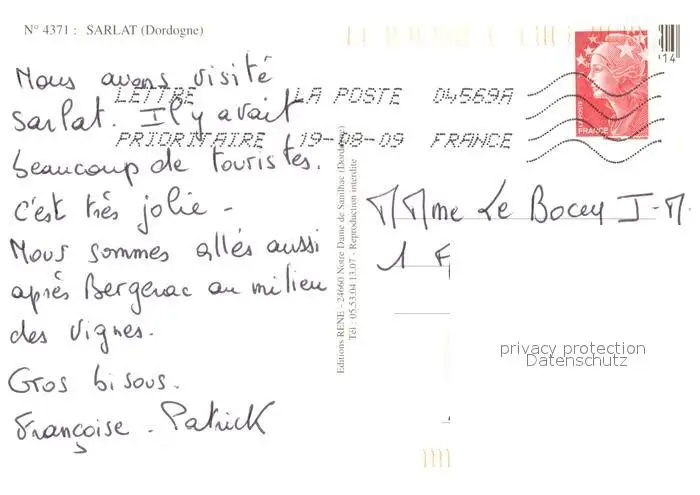 N° 4371 : SARLAT (Dordogne)
Nous avons visité
Sarlat. Il y avait
beaucoup de touristes.
C'est très jolie -
Nous sommes allés aussi
après Bergerac au milieu
des vignes.
Gros bisous.
Françoise - Patrick
LETTRE LA POSTE 04569A
PRIORITAIRE 19-08-09 FRANCE
Editions RENE - 24660 Notre Dame de Sanilhac (Dordogne)
Tél : 05.53.04.13.07 - Reproduction interdite
FRANCE
14
MMme Le Bocey J-M.
1
privacy protection
Datenschutz